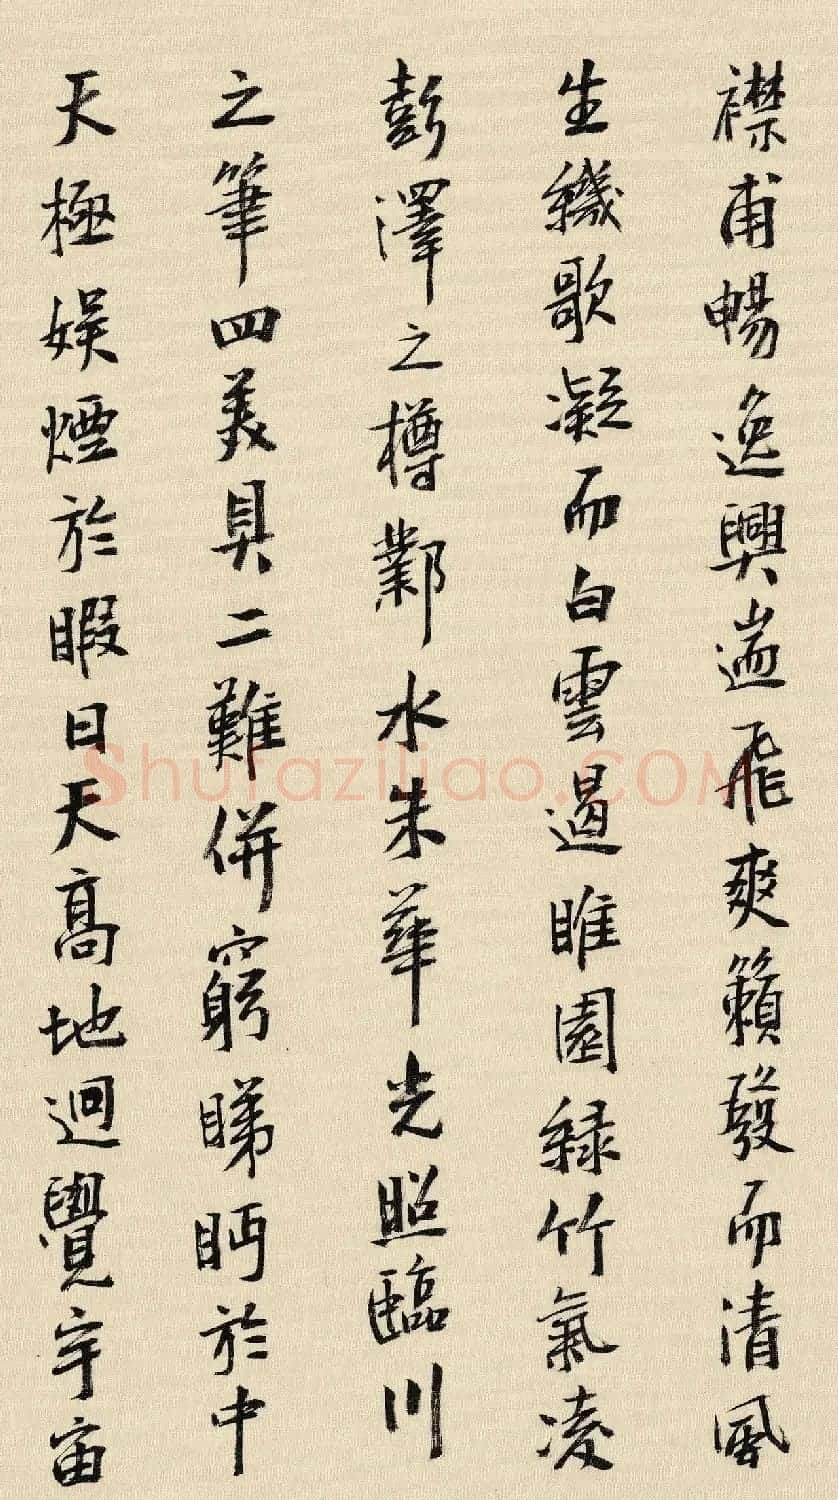 襟甫暢逸興遄飛爽籟發而清風
生纖歌凝而白雲遏睢園綠竹氣凌
彭澤之樽鄴水朱華光照臨川
之筆四美具二難併窮睇眄於中
天極娛煙於暇日天高地迥覺宇宙
Shufaziliao.COM